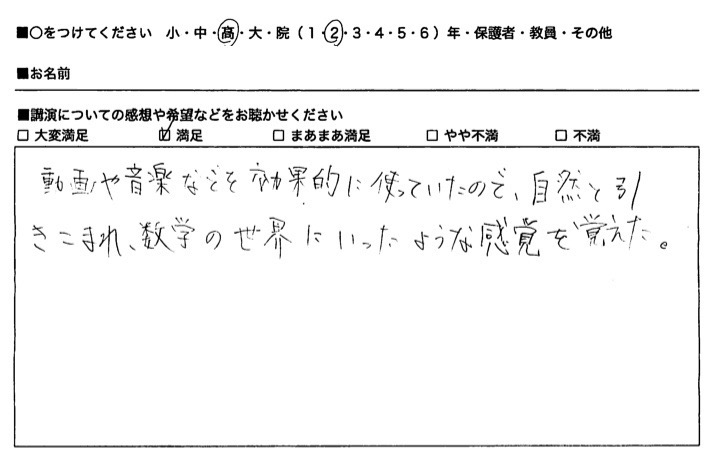 ■○をつけてください 小・中・高・大・院（1・2・3・4・5・6）年・保護者・教員・その他
■お名前
■講演についての感想や希望などをお聴かせください
□ 大変満足 ☑ 満足 □ まあまあ満足 □ やや不満 □ 不満
動画や音楽などを効果的に使っていたので、自然と引
きこまれ、数学の世界にいったような感覚を覚えた。